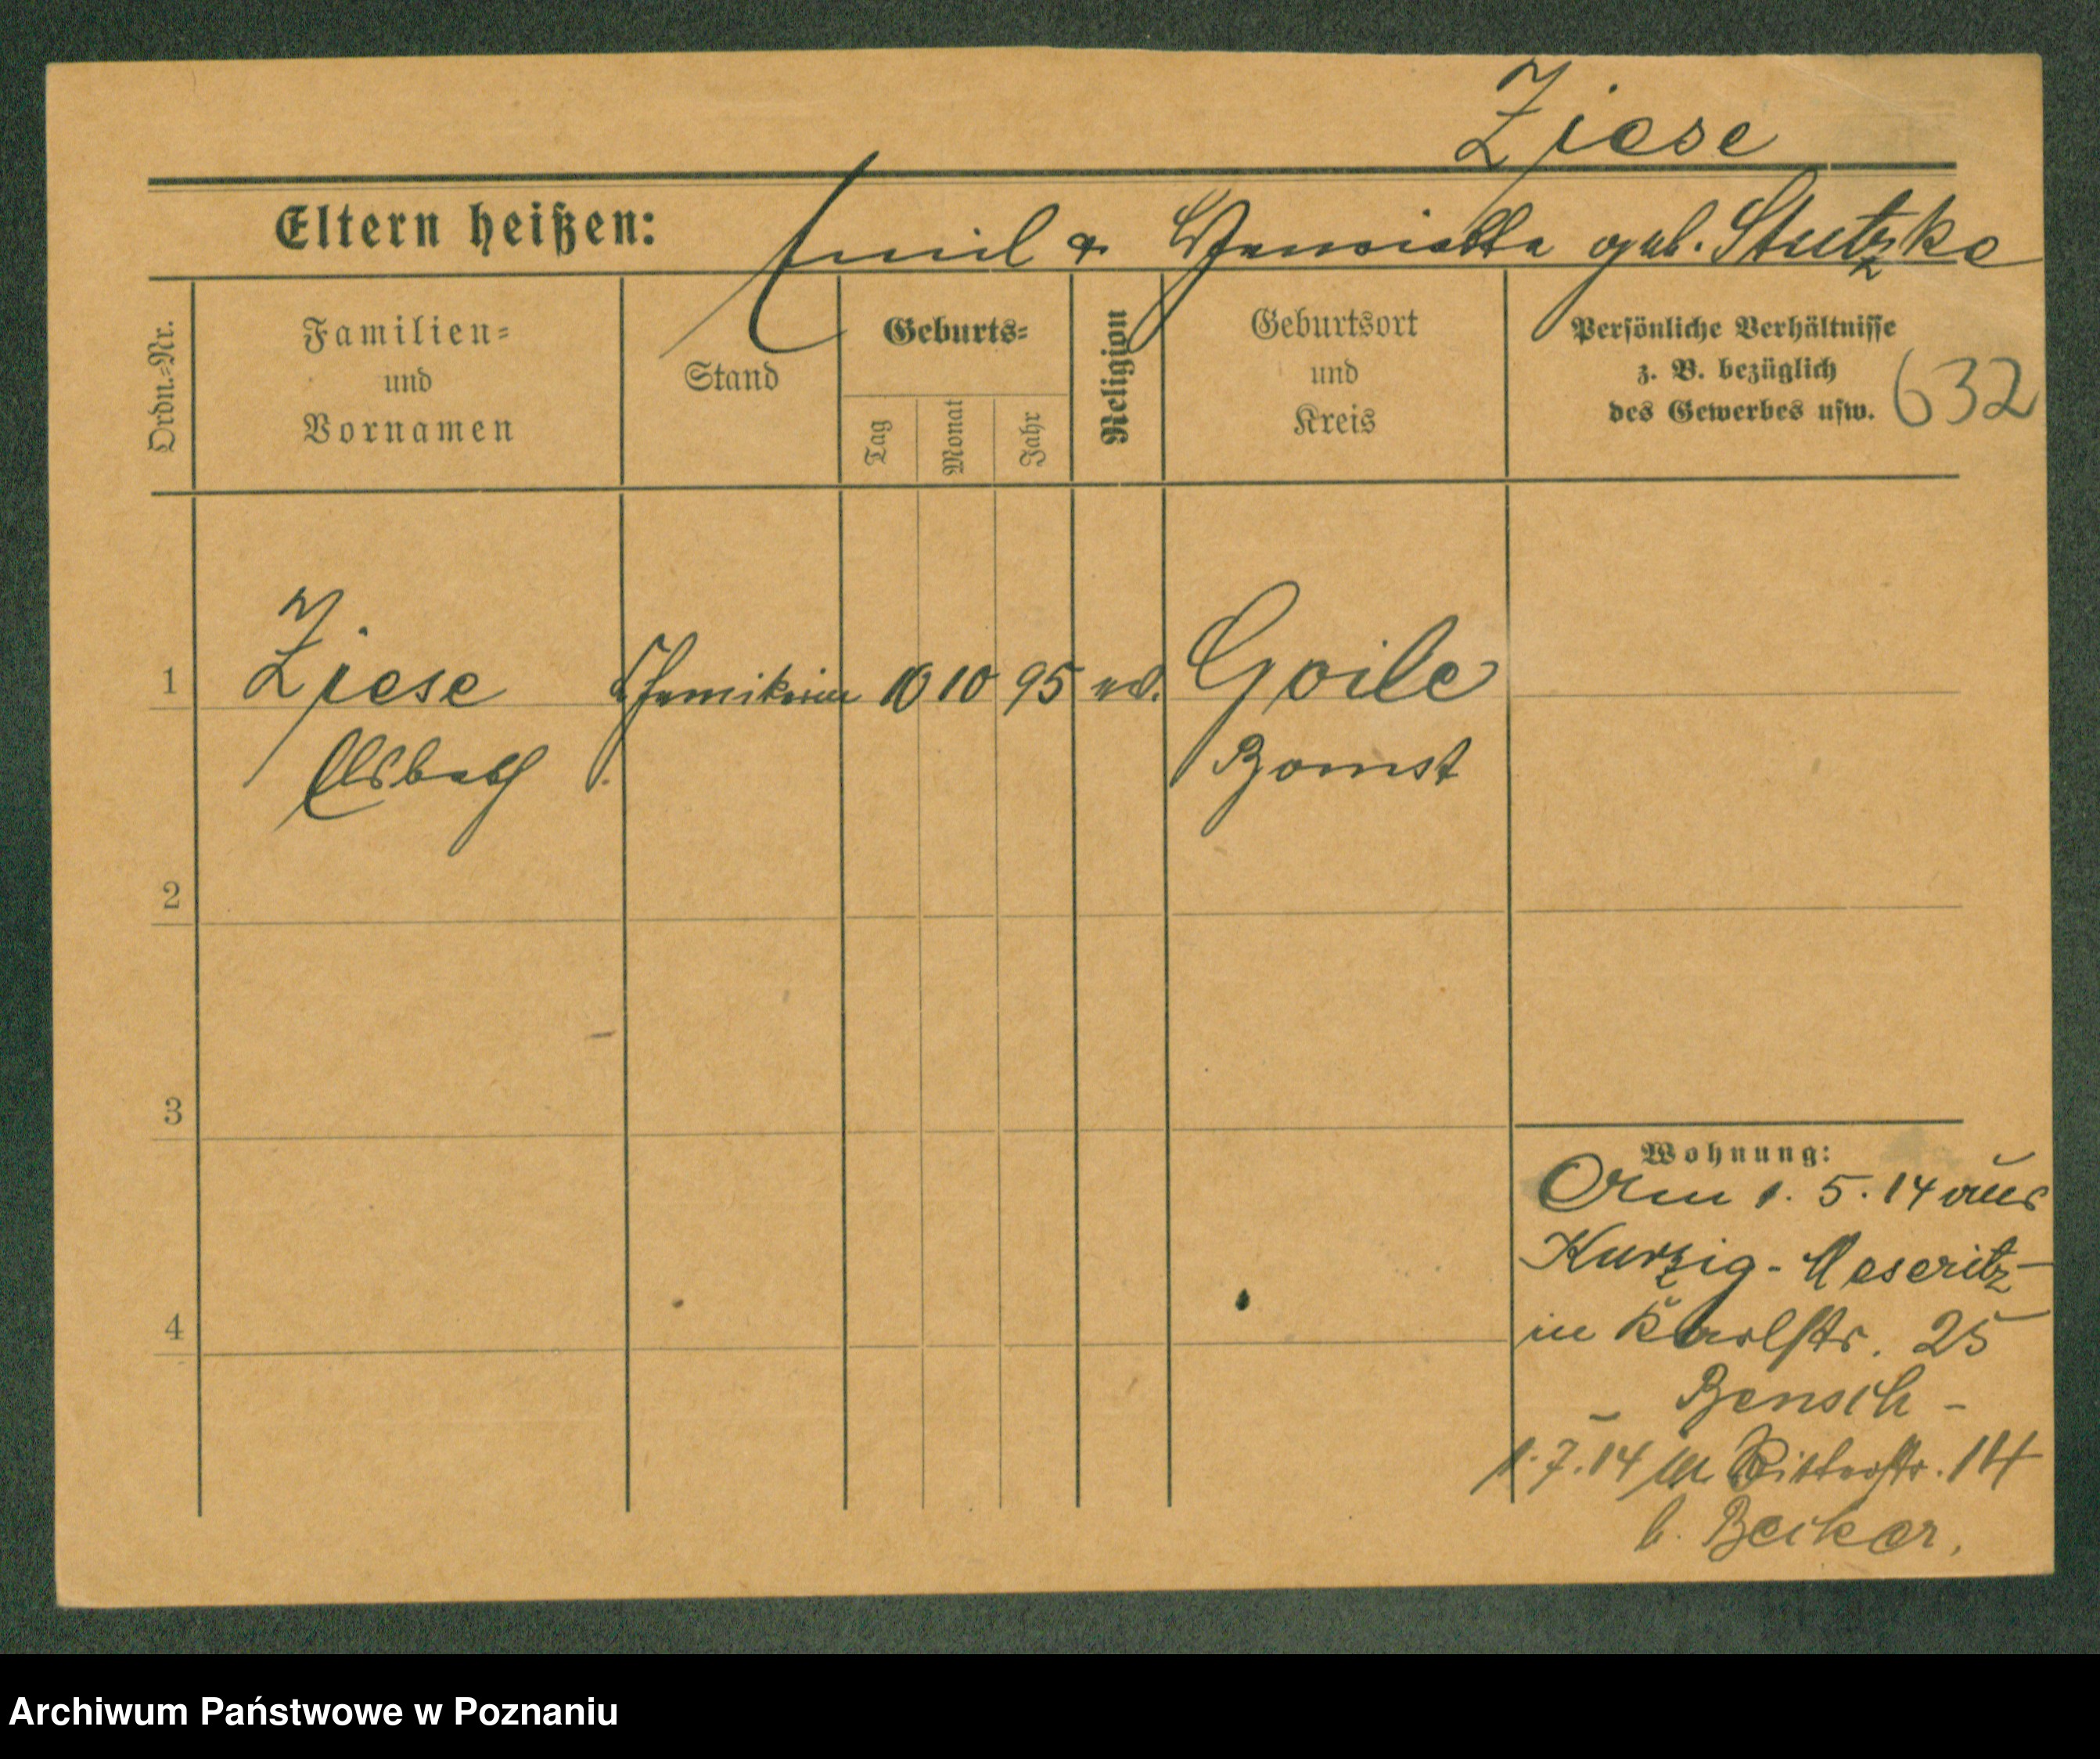 Ziese
Eltern heißen: Emil & Henriette geb. Stutzke
Ordn.-Nr.
Familien-
und
Vornamen
Stand
Geburts-
Tag
Monat
Jahr
Religion
Geburtsort
und
Kreis
Persönliche Verhältnisse
z. B. bezüglich
des Gewerbes usw.
632
1 Ziese 10 10 95 ev. Goile
Elsbeth Bomst
2
3
4
Wohnung:
Am 1. 5. 14 aus
Kurzig-Meseritz
in Karlstr. 25
Bensch -
1.7.14 in Ritterstr. 14
b. Becker.
Archiwum Państwowe w Poznaniu